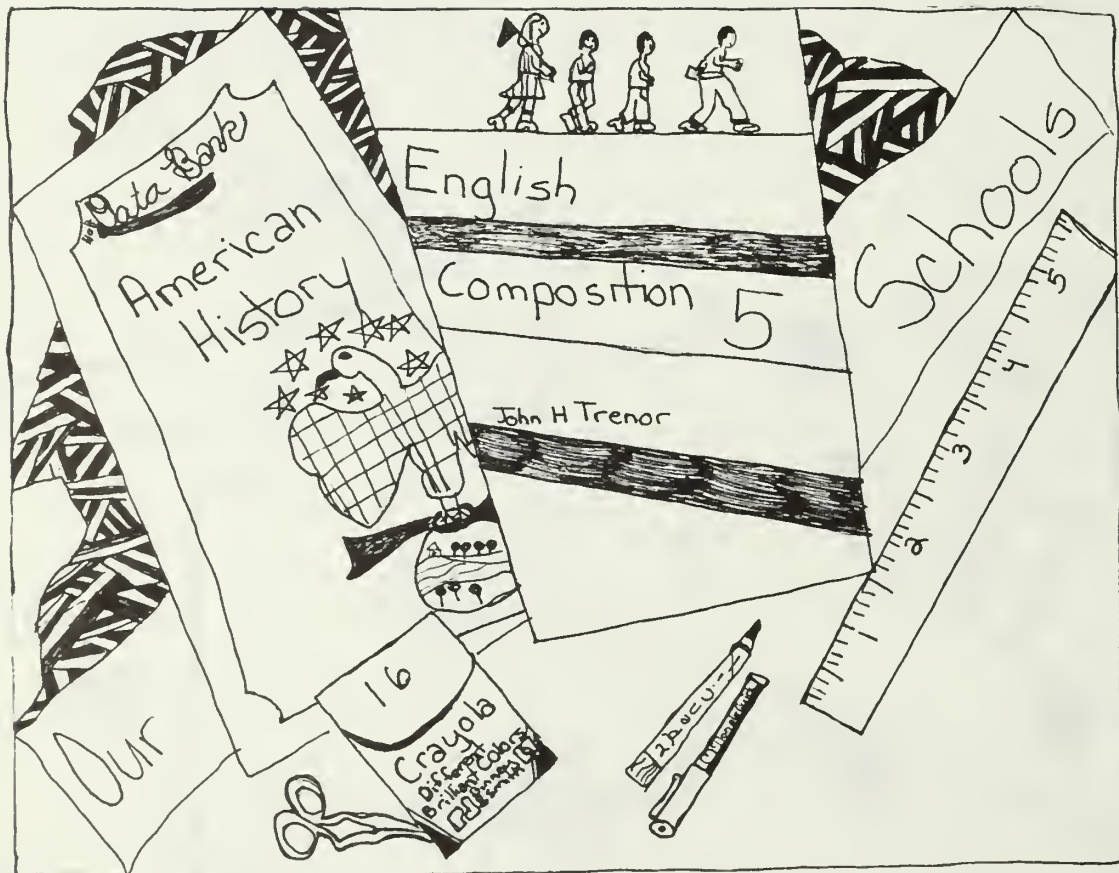 Data Bank
American
History
English
Composition 5
John H Trenor
Schools
5
4
3
2
1
Our
16
Crayola
Different
Brilliant Colors
Binney
& Smith